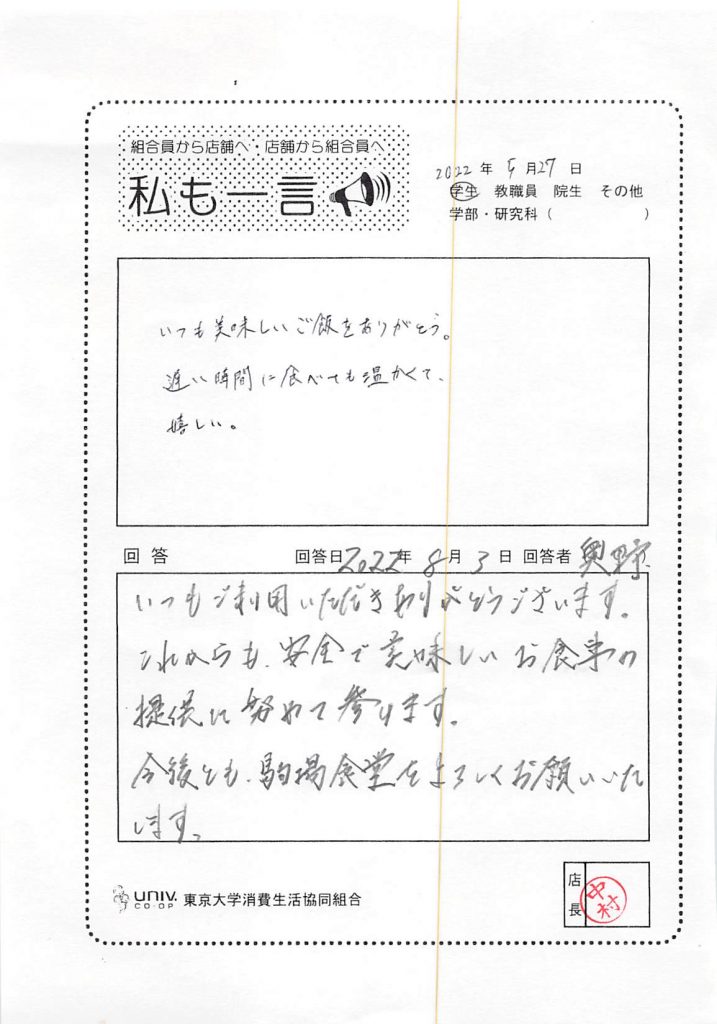 組合員から店舗へ・店舗から組合員へ
私も一言
2022年5月27日
学生 教職員 院生 その他
学部・研究科（ ）
いつも美味しいご飯をありがとう。
遅い時間に食べても温かくて、
嬉しい。
回答 回答日2022年8月3日 回答者 奥野
いつもご利用いただきありがとうございます。
これからも、安全で美味しいお食事の
提供に努めて参ります。
今後とも、駒場食堂をよろしくお願いいた
します。
UNIV.
CO-OP
東京大学消費生活協同組合
店長
中村